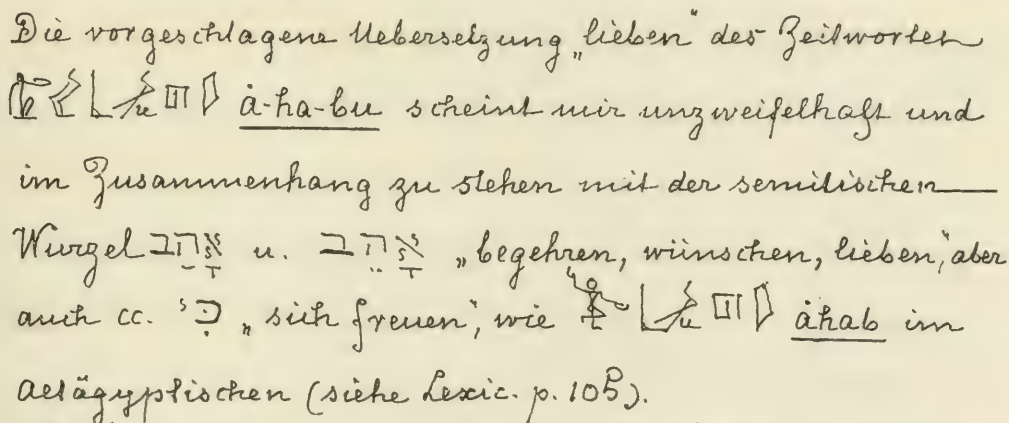 Die vorgeschlagene Uebersetzung „lieben“ des Zeitwortes
å-ha-bu scheint mir unzweifelhaft und
im Zusammenhang zu stehen mit der semitischen
Wurzel אָהַב u. אָהֵב „begehren, wünschen, lieben“, aber
auch cc. כִּי „sich freuen“, wie åhab im
Altägyptischen (siehe Lexic. p. 105).